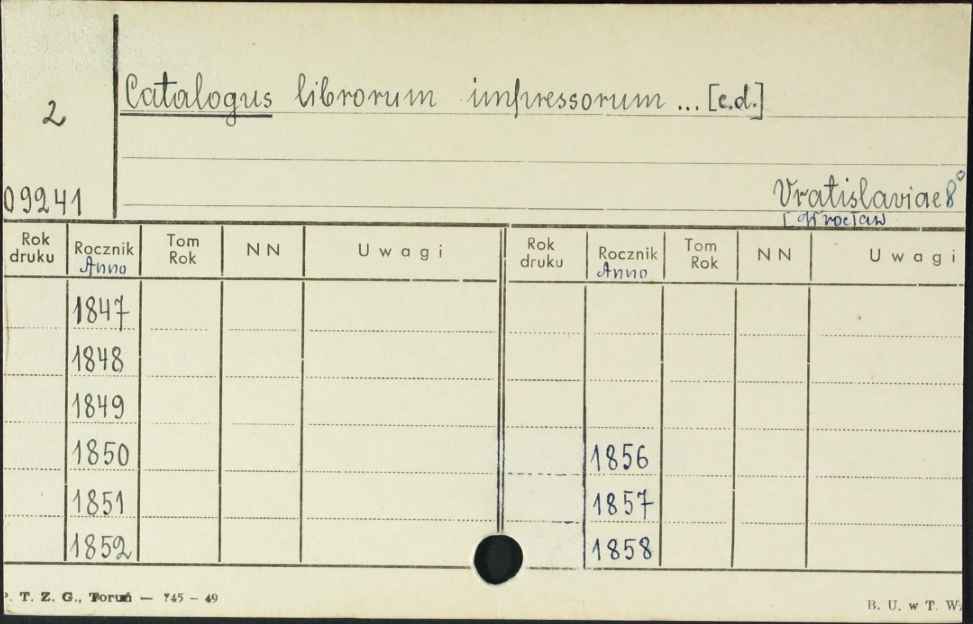 2
Catalogus librorum impressorum ... [c.d.]
09241
Vratislaviae 8°
[Wrocław
Rok druku Rocznik Anno Tom Rok NN Uwagi Rok druku Rocznik Anno Tom Rok NN Uwagi
1847
1848
1849
1850 1856
1851 1857
1852 1858
. T. Z. G., Toruń — 745 – 49
B. U. w T. W